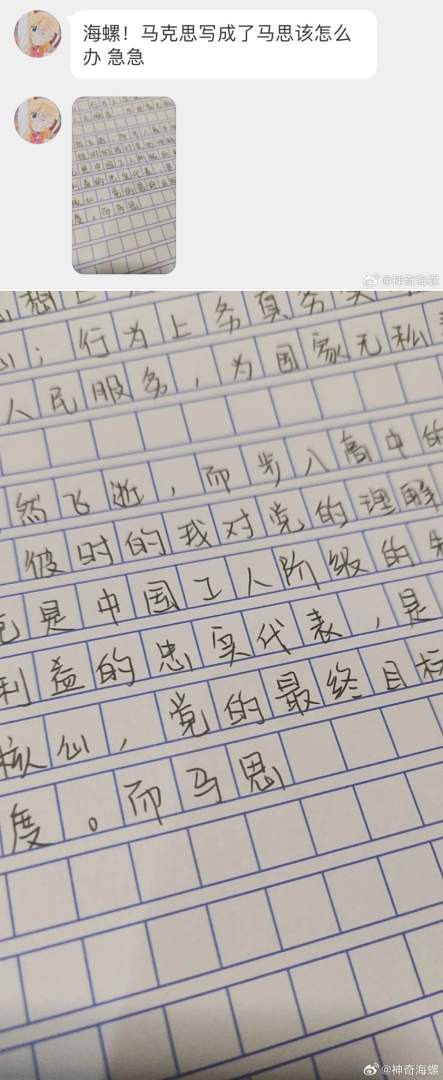 海螺！马克思写成了马思该怎么
办 急急
@神奇海螺
想上
心；行为上务真务实
人民服务，为国家无私
然飞逝，而步入高中的
彼时的我对党的理解
是中国工人阶级的先
利益的忠实代表，是
核心，党的最终目标
度。而马思
@神奇海螺